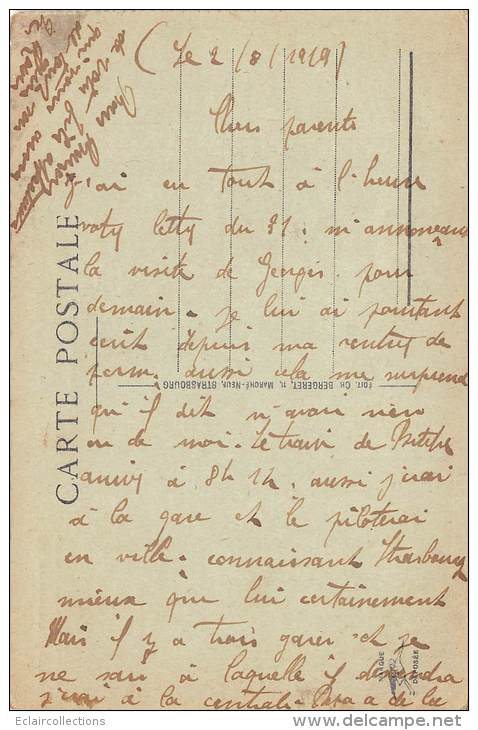 (Le 2/8/1919)
Chers parents
j'ai eu tout à l'heure
votre lettre du 31. m'annonçant
la visite de Georges pour
demain. je lui ai pourtant
écrit depuis ma rentrée de
perm. aussi cela me surprend
qu'il dit n'avoir rien
eu de moi. Le train de
arrive à 8h 14. aussi j'irai
à la gare et le piloterai
en ville. connaissant Strasbourg
mieux que lui certainement
Mais il y a trois gares et je
ne sais à laquelle il descendra
j'irai à la centrale. Papa a de la
de votre fils
CARTE POSTALE
EDIT. CH. BERGERET, 11, MARCHÉ-NEUF, STRASBOURG
MARQUE
DÉPOSÉE
Eclaircollections